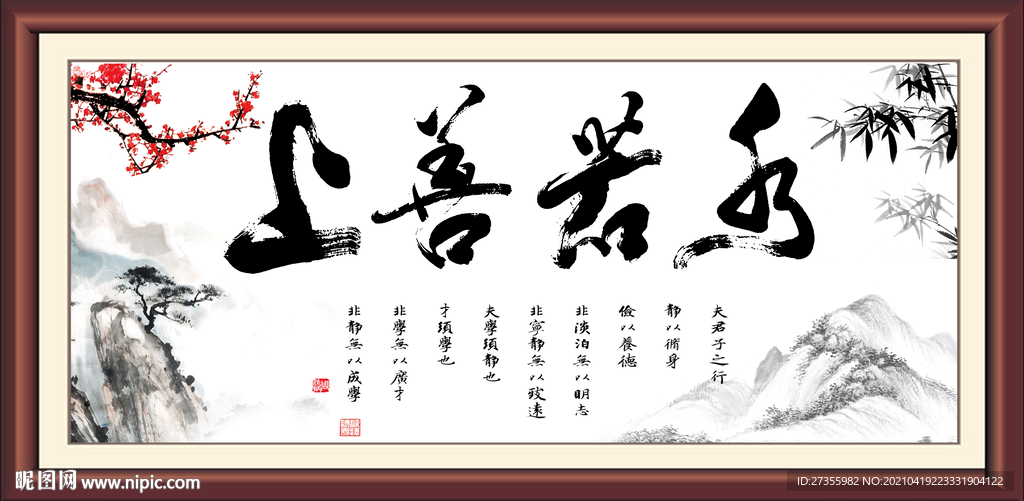 上善若水
夫君子之行
靜以脩身
儉以養德
非淡泊無以明志
非寧靜無以致遠
夫學須靜也
才須學也
非學無以廣才
非靜無以成學
昵图网 www.nipic.com
ID:27355982 NO:20210419223331904122